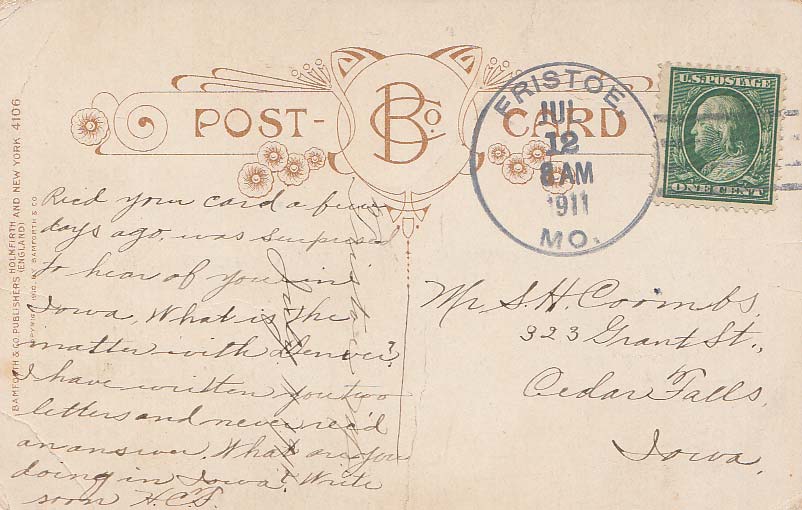 BAMFORTH & CO. PUBLISHERS HOLMFIRTH AND NEW YORK 4106
(ENGLAND)
COPYRIGHT 1910, BY BAMFORTH & CO
POST-CARD
B Co.
FRISTOE,
JUL
12
8 AM
1911
MO.
U.S. POSTAGE
ONE CENT
Rec'd your card a few
days ago. was surprised
to hear of you in
Iowa. What is the
matter with Denver?
I have written you two
letters and never rec'd
an answer. What are you
doing in Iowa? Write
soon H.C.F.
Fristoe Mo
July 11
Mr S.H. Coombs,
323 Grant St.,
Cedar Falls,
Iowa.